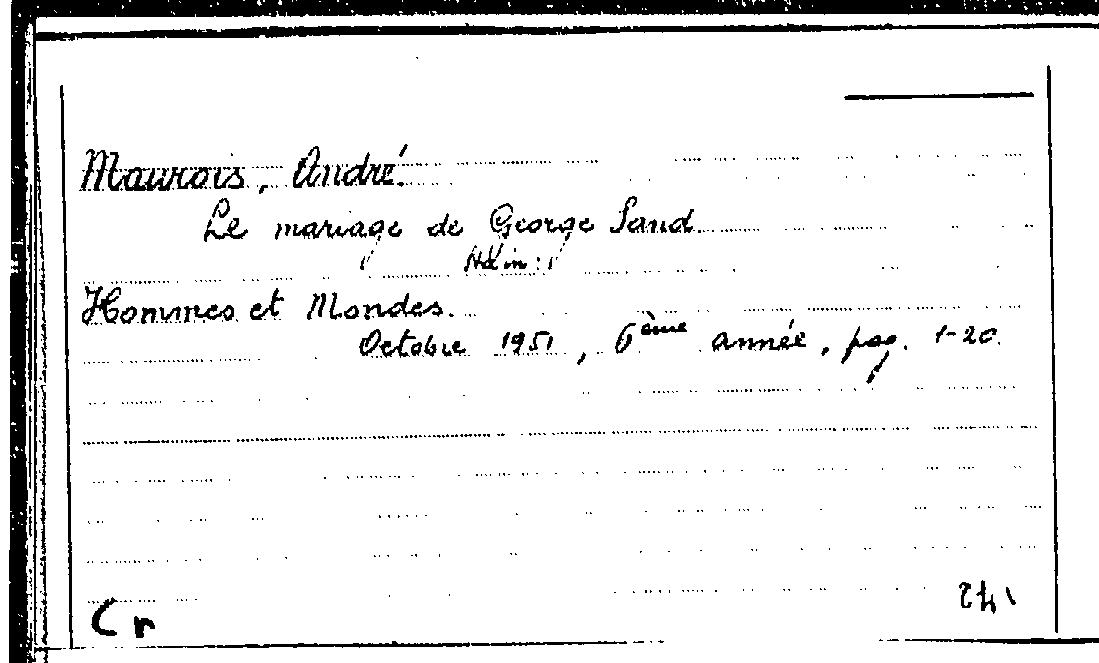 Maurois, André.
Le mariage de George Sand.
In:
Hommes et Mondes.
Octobre 1951, 6ème année, pag. 1-20.
Cr